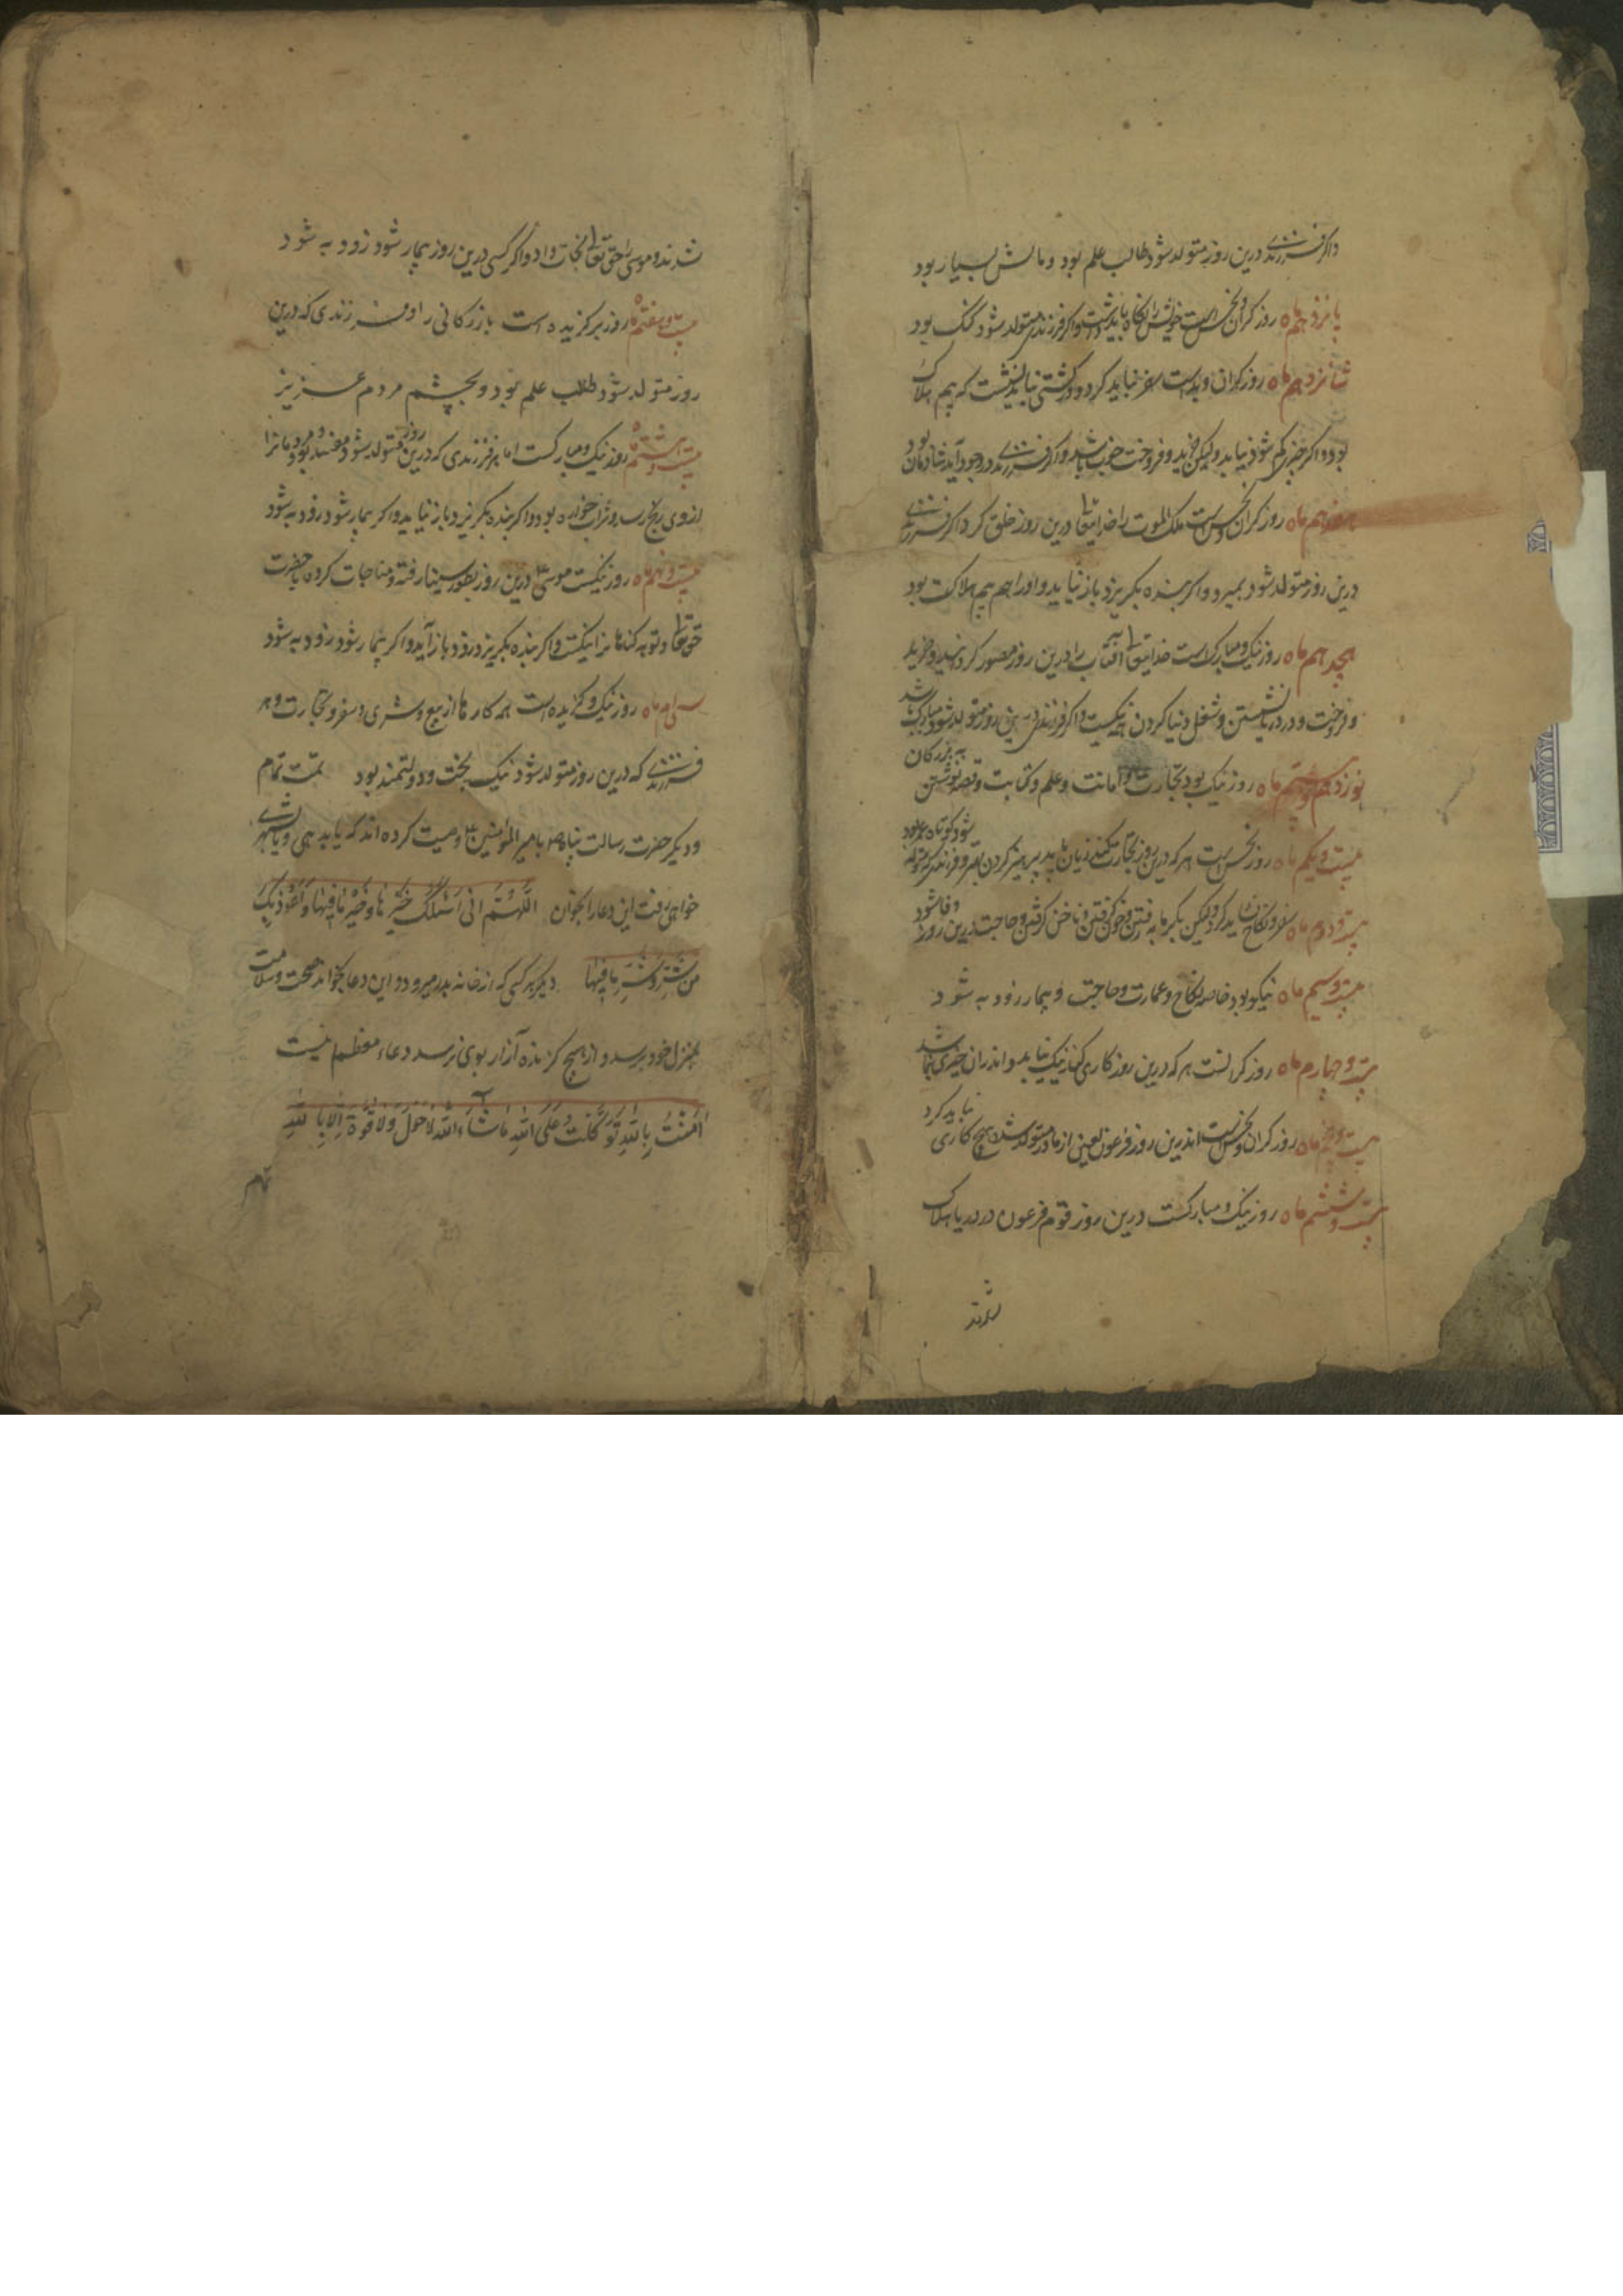 واکر فرزندی درین روز متولد شود طالب علم بود و مالش بسیار بود
پانزدهم ماه روز کران و نحس است خویش را نکاه باید داشت واکر فرزندی متولد شود کنک بود
شانزدهم ماه روز کران و بد است سفر نباید کرد و در کشتی نباید نشست که بیم هلاک
بود واکر چیزی کم شود نیابد ولیکن خرید و فروخت خوب باشد واکر فرزندی در وجود آید شادمان بود
هفدهم ماه روز کران و نحس است ملک الموت را خدایتعالی درین روز خلق کرد واکر فرزندی
درین روز متولد شود بمیرد واکر بنده بکریزد باز نیاید و او را هم بیم هلاکت بود
هجدهم ماه روز نیک و مبارک است خدایتعالی آفتاب را درین روز مصور کردانید و خرید
و فروخت و در دریا نشستن و شغل دنیا کردن نیکست واکر فرزندی درین روز متولد شود مبارک باشد
نوزدهم و بیستم ماه روز نیک بود تجارت و امانت و علم و کتابت و قصه نوشتن به بزرکان
بیست و یکم ماه روز نحس است هر که درین روز تجارت کند زیان یابد پرهیز کردن بهتر و فرزندی که متولد شود کوتاه عمر بود
بیست و دوم ماه سفر و نکاح باید کرد ولیکن بکرمابه رفتن و خون کرفتن و ناخن کرفتن و حاجت درین روز وفا شود
بیست و سیم ماه نیکو بود خاصه نکاح و عمارت و حاجت و بیمار زود به شود
بیست و چهارم ماه روز کرانست هر که درین روز کاری کند نیک نیاید و اندران چیزی نباشد
بیست و پنجم ماه روز کران و نحس است اندرین روز فرعون لعین از مادر متولد شد هیچ کاری نباید کرد
بیست و ششم ماه روز نیک و مبارکست درین روز قوم فرعون در دریا هلاک
شدند
شدند و موسی را حق تعالی نجات داد واکر کسی درین روز بیمار شود زود به شود
بیست و هفتم ماه روز برکزیده است بازرکانی را و فرزندی که درین
روز متولد شود طالب علم بود و بچشم مردم عزیز
بیست و هشتم ماه روز نیک و مبارکست اما هر فرزندی که درین روز متولد شود مفسد بود و مردمانرا
از وی رنج رسد و شراب خواره بود واکر بنده بکریزد باز نیاید واکر بیمار شود زود به شود
بیست و نهم ماه روز نیکست موسی درین روز بطور سینا رفته و مناجات کرده با حضرت
حق تعالی و توبه کناهانرا نیکست واکر بنده بکریزد زود باز آید واکر بیمار شود زود به شود
سی ام ماه روز نیک و کزیده است همه کارها از بیع و شری و سفر و تجارت و هر
فرزندی که درین روز متولد شود نیک بخت و دولتمند بود تمت تمام
و دیکر حضرت رسالت پناه ص بامیر المؤمنین ع وصیت کرده اند که یا به دهی و یا بشهری
خواهی رفت این دعا را بخوان اللهم انی اسئلک خیرها و خیر ما فیها و اعوذ بک
من شرها و شر ما فیها دیکر هر کسی که از خانه بدر میرود و این دعا بخواند بصحت و سلامت
بمنزل خود برسد و از هیچ کزنده آزار بوی نرسد دعاء معظم اینست
آمنت بالله توکلت علی الله ما شاء الله لا حول ولا قوة الا بالله